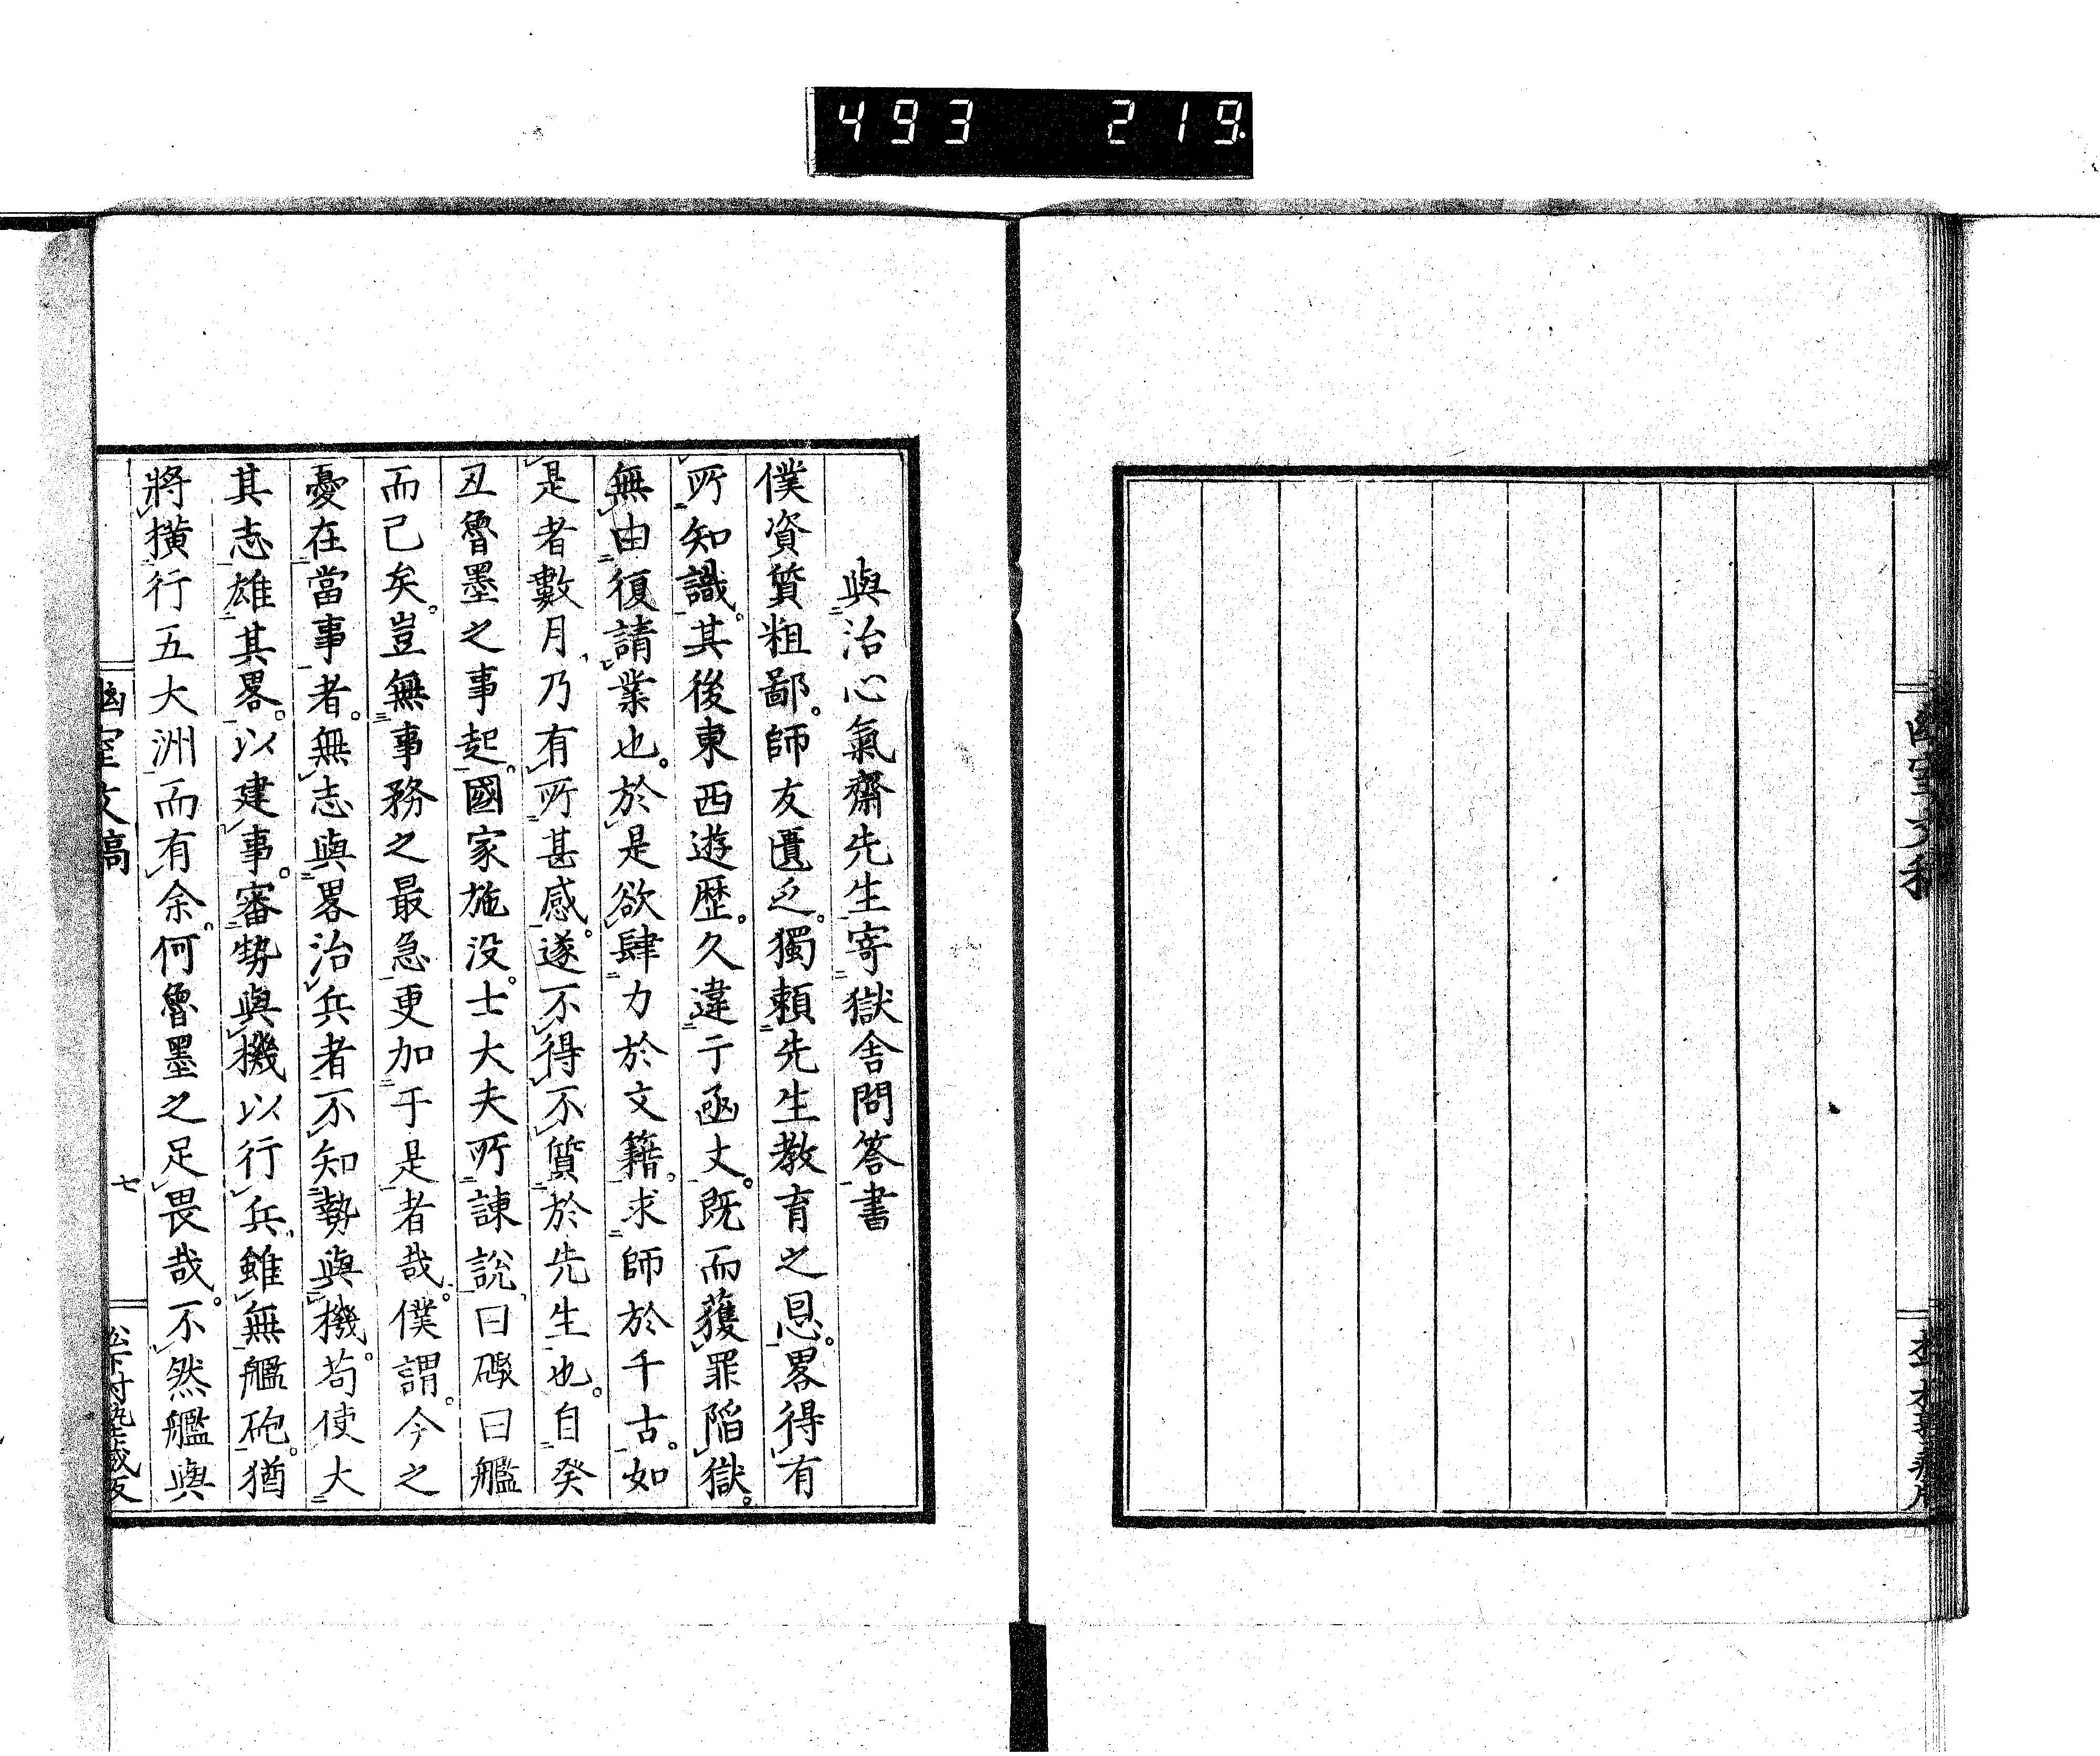 493 219
與治心氣齋先生寄獄舍問答書
僕資質粗鄙。師友匱乏。獨賴先生教育之恩。畧得有
所知識。其後東西遊歷。久違于函丈。既而獲罪陷獄。
無由復請業也。於是欲肆力於文籍。求師於千古。如
是者數月、乃有所甚感。遂不得不質於先生也。自癸
丑魯墨之事起。國家施没。士大夫所諫說、曰礮曰艦
而已矣。豈無事務之最急更加于是者哉。僕謂。今之
憂在當事者。無志與畧治兵者不知勢與機。苟使大
其志雄其畧。以建事。審勢與機以行兵、雖無艦砲。猶
將橫行五大洲而有余。何魯墨之足畏哉。不然艦與
幽室文稿
七
松下村塾藏版